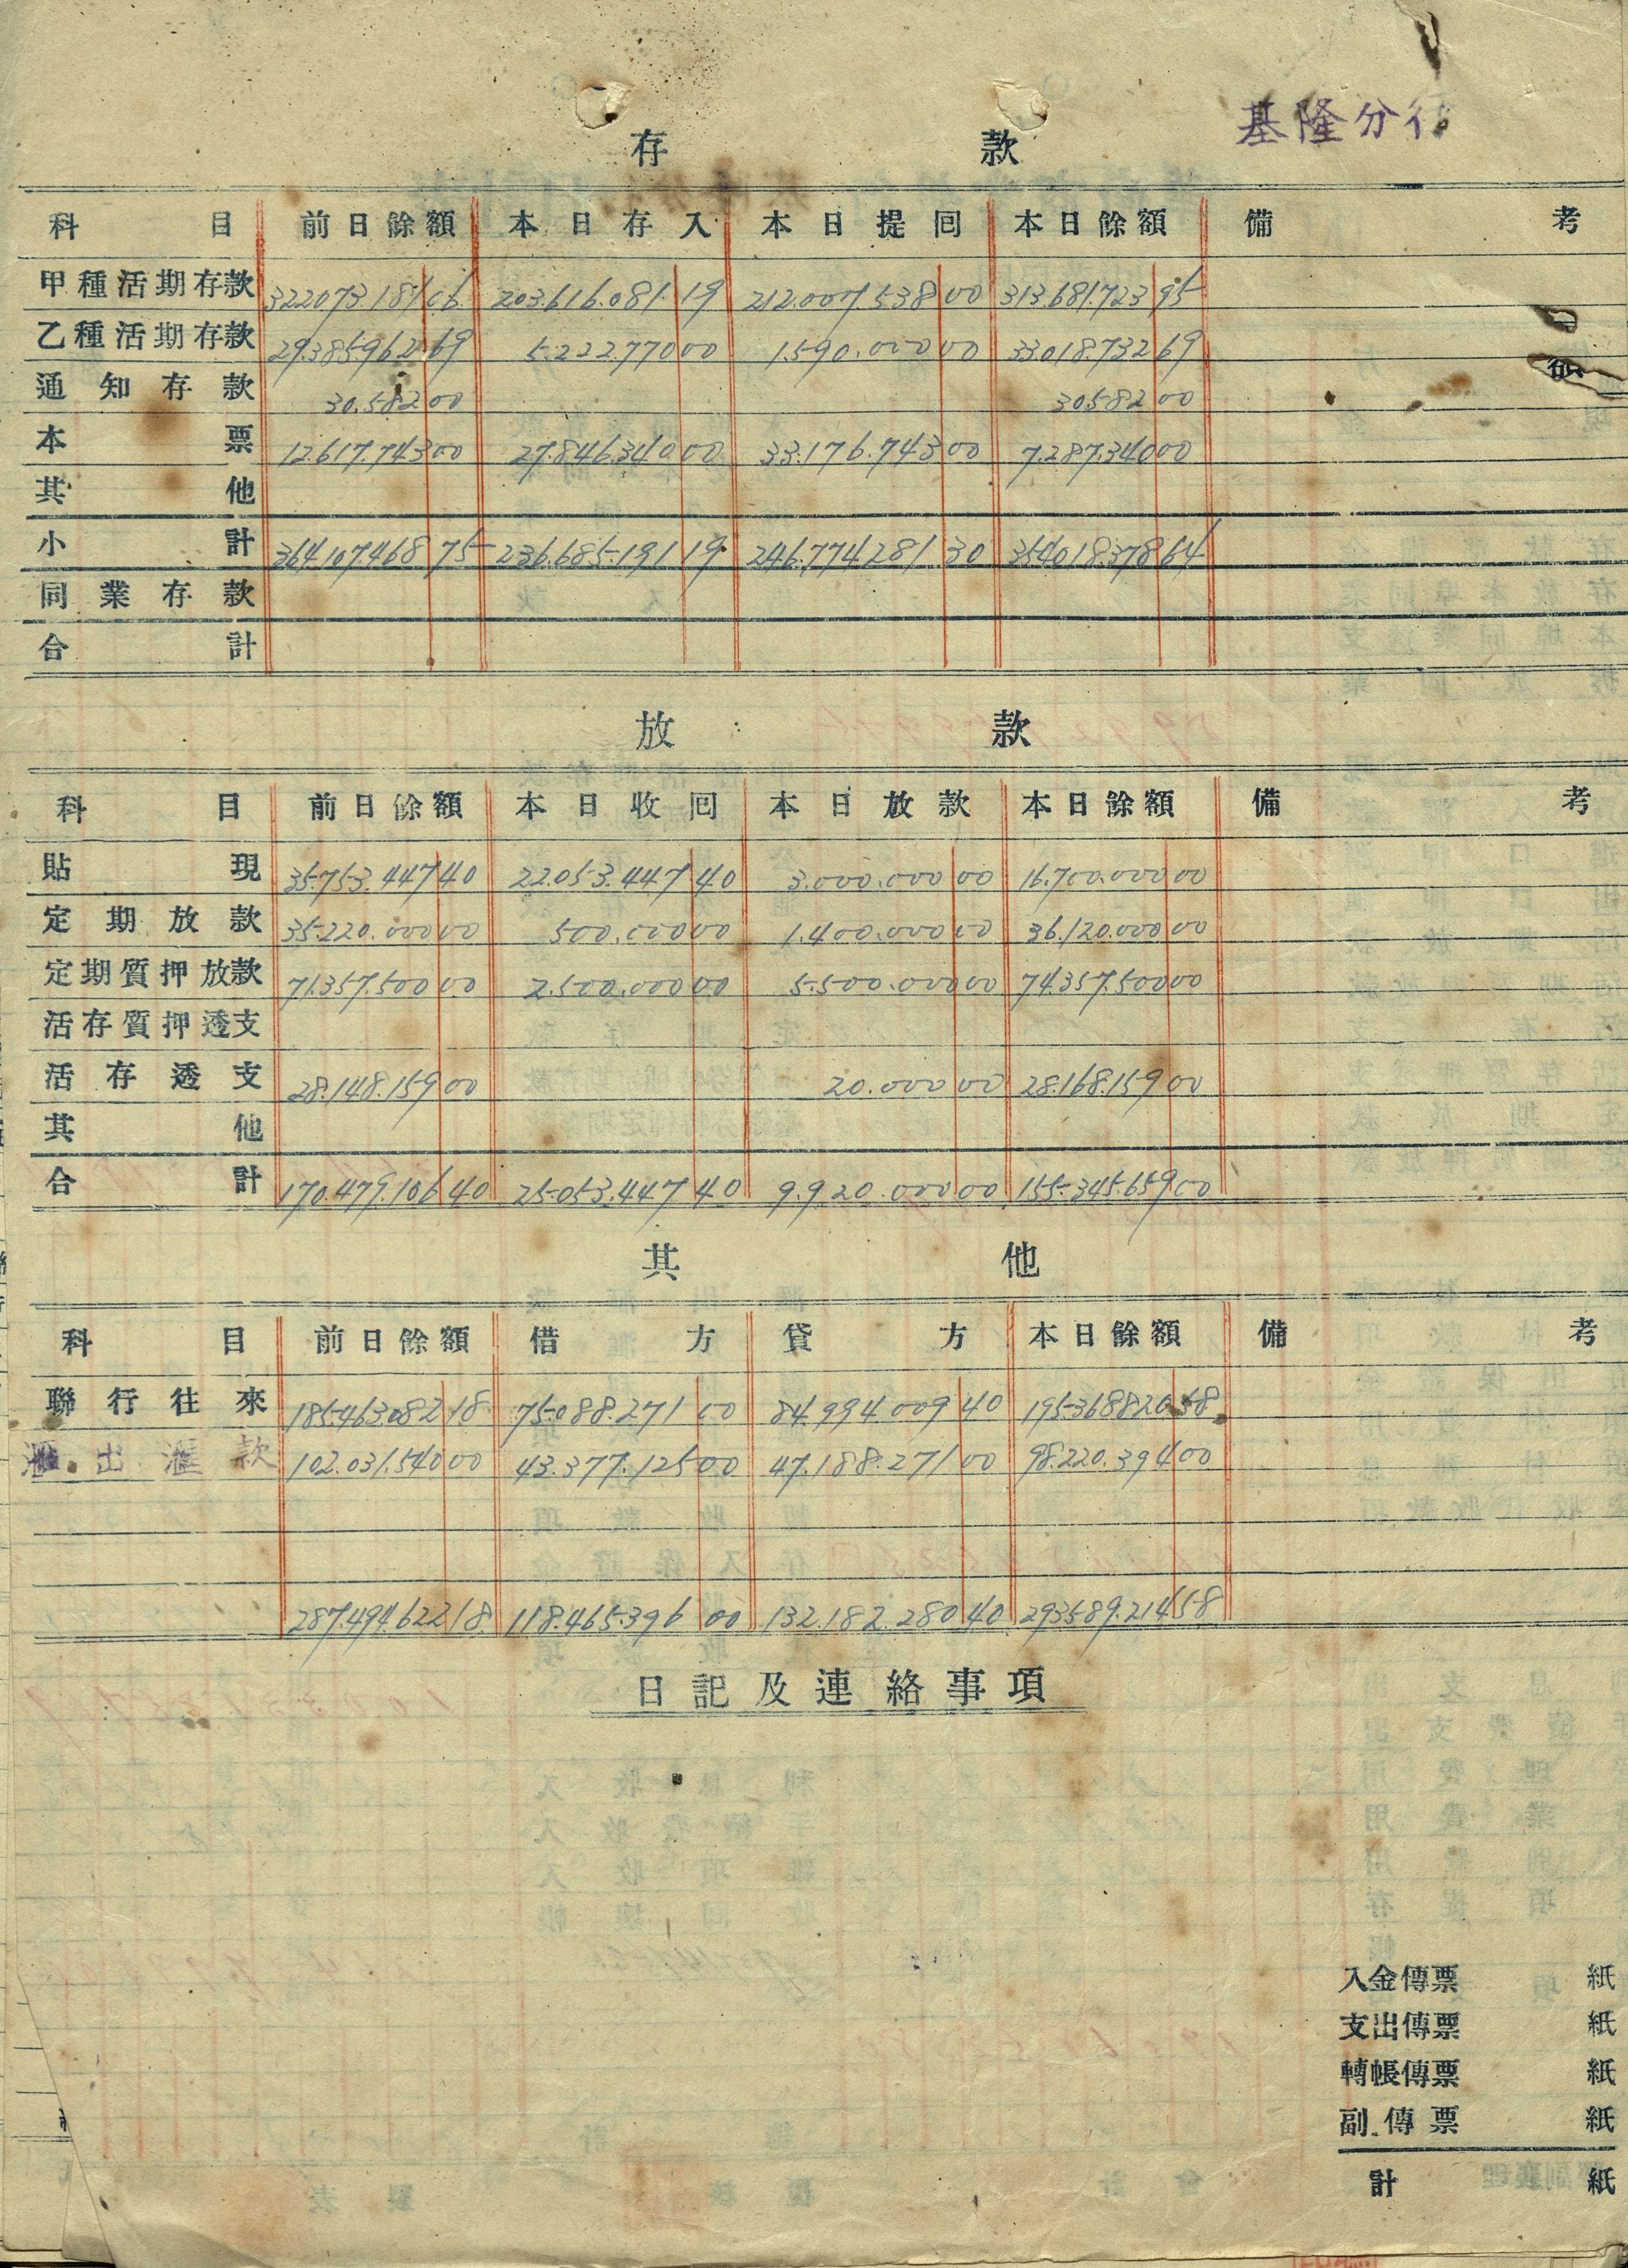 基隆分行
存款
科目 前日餘額 本日存入 本日提囘 本日餘額 備考
甲種活期存款 322073181 06 203.616.081 19 212.007.538 00 313.681.723 95
乙種活期存款 29.385.962 69 5.222.770 00 1.590.000 00 33.018.732 69
通知存款 30.582 00 30582 00
本票 12.617.743 00 27.846.340 00 33.176.743 00 7.287.340 00
其他
小計 364107.468 75 236.685.191 19 246.774281 30 354018.378 64
同業存款
合計
放款
科目 前日餘額 本日收囘 本日放款 本日餘額 備考
貼現 35.753.447 40 22.053.447 40 3.000.000 00 16.700.000 00
定期放款 35.220.000 00 500.000 00 1.400.000 00 36.120.000 00
定期質押放款 71.357.500 00 2.500.000 00 5.500.000 00 74.357.500 00
活存質押透支
活存透支 28.148.159 00 20.000 00 28.168.159 00
其他
合計 170.479.106 40 25.053.447 40 9.920.000 00 155.345.659 00
其他
科目 前日餘額 借方 貸方 本日餘額 備考
聯行往來 185.463.082 18 75.088.271 00 84.994.009 40 195368820 58
滙出滙款 102.031.540 00 43.377.125 00 47.188.271 00 98.220.394 00
287.494.622 18 118.465.396 00 132.182.280 40 293589.214 58
日記及連絡事項
入金傳票 紙
支出傳票 紙
轉帳傳票 紙
副傳票 紙
計 紙